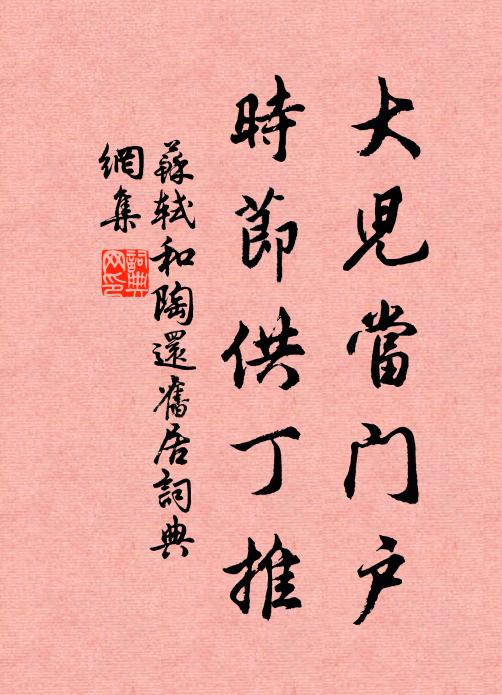 大兒當门户
時節供丁推
蘇軾和陶還舊居詞典
網集
詞典
网印